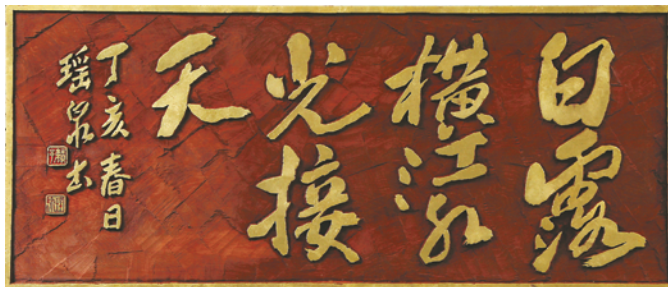 白露
橫江水
光接
天
丁亥春日
瑶泉书